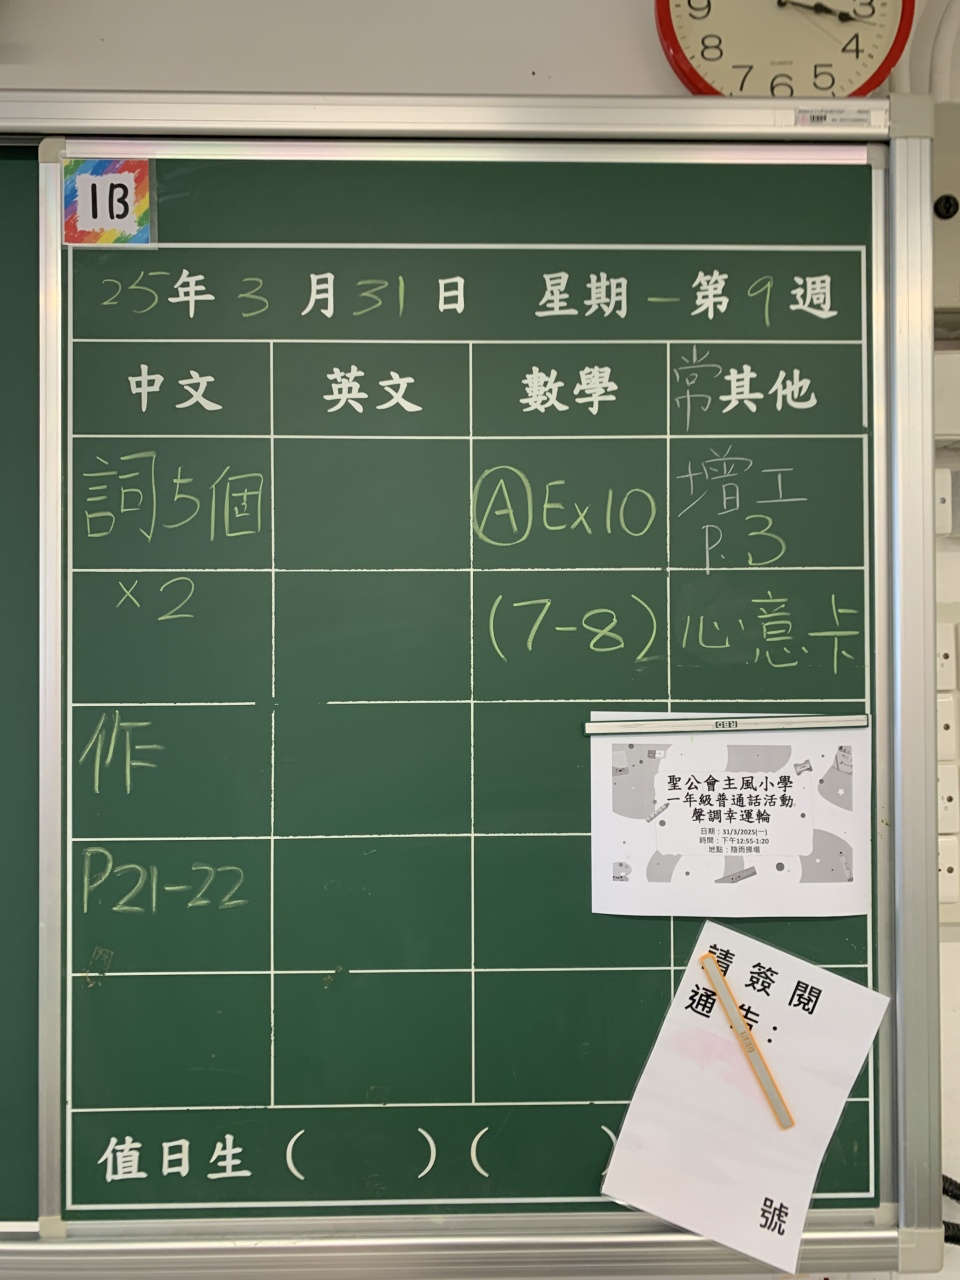 9 3
8 4
7 6 5
QUARTZ
1B
25年3月31日 星期一 第9週
中文 英文 數學 常 其他
詞5個
×2
作
P.21-22
Ⓐ Ex10
(7-8)
增工
P.3
心意卡
聖公會主風小學
一年級普通話活動
聲調幸運輪
日期：31/3/2025(一)
時間：下午12:55-1:20
地點：陰雨操場
請簽閱
通告：
號
值日生 ( ) ( )